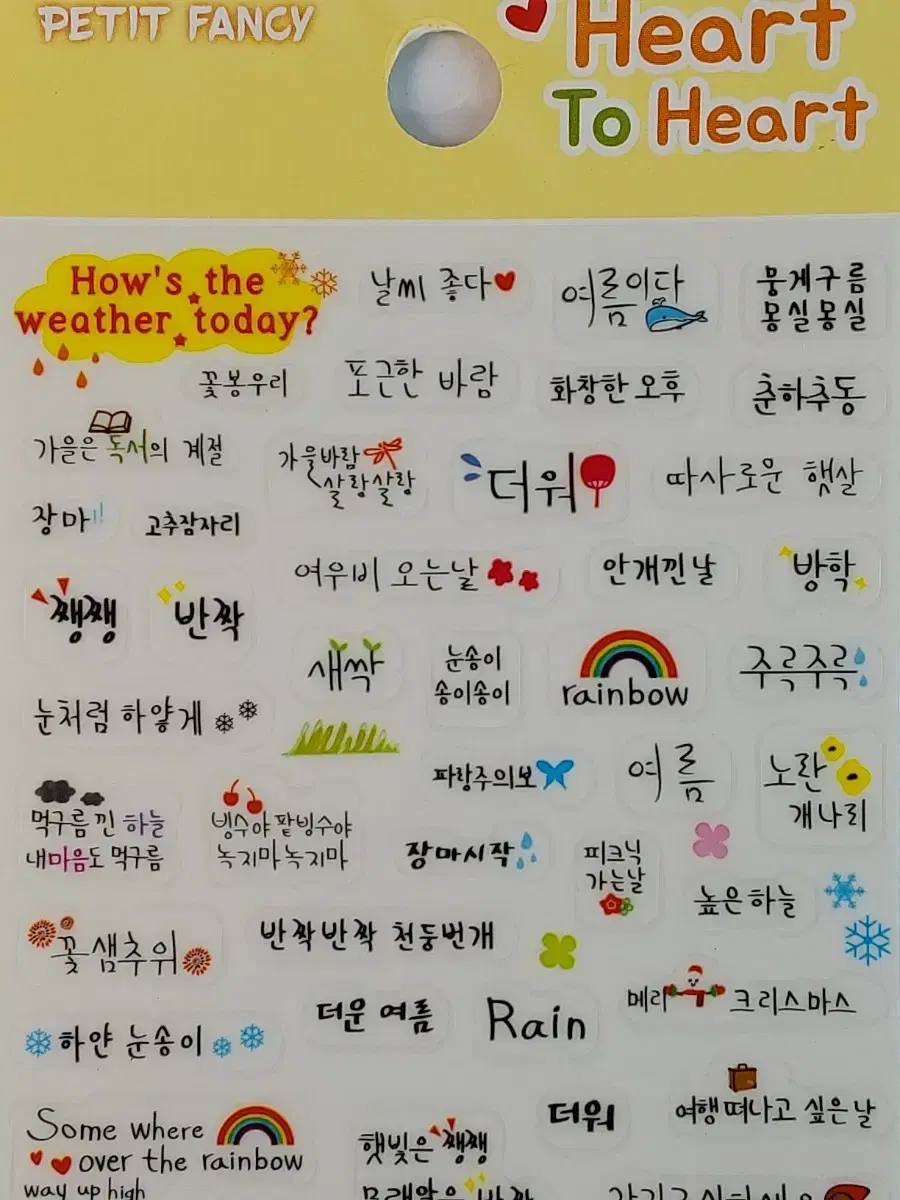 PETIT FANCY
Heart
To Heart
How's the
weather today?
날씨 좋다
여름이다
뭉게구름
몽실몽실
꽃봉우리
포근한 바람
화창한 오후
춘하추동
가을은 독서의 계절
가을바람
살랑살랑
더워
따사로운 햇살
장마
고추잠자리
여우비 오는날
안개낀날
방학
쨍쨍
반짝
새싹
눈송이
송이송이
rainbow
주륵주륵
눈처럼 하얗게
파랑주의보
여름
노란
개나리
먹구름 낀 하늘
내마음도 먹구름
빙수야 팥빙수야
녹지마 녹지마
장마시작
피크닉
가는날
높은하늘
꽃샘추위
반짝반짝 천둥번개
하얀 눈송이
더운 여름
Rain
메리 크리스마스
Some where
over the rainbow
way up high
햇빛은 쨍쨍
더워
여행 떠나고 싶은날
모래알은 반짝
감기조심하세요